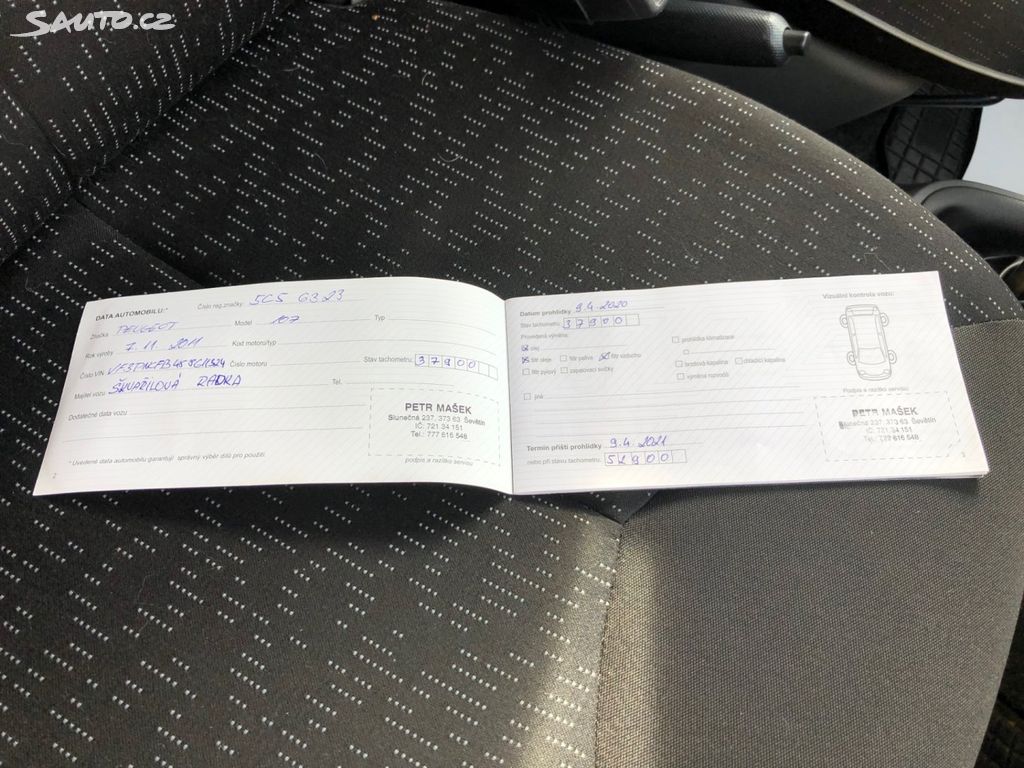 Sauto.cz
DATA AUTOMOBILU:*
Číslo reg.značky 5C5 6323
Značka PEUGEOT Model 107 Typ
Rok výroby 7.11. 2011 Kód motoru/typ
Číslo VIN Číslo motoru Stav tachometru: 37900
Majitel vozu ŠKVAŘILOVÁ RADKA Tel.
Dodatečné data vozu
PETR MAŠEK
Slunečná 237, 373 63 Ševětín
IČ: 721 34 151
Tel.: 777 616 548
* Uvedené data automobilu garantují správný výběr dílů pro použití.
podpis a razítko servisu
2
Datum prohlídky 9.4. 2020
Stav tachometru: 37900
Provedená výměna:
olej
filtr oleje filtr paliva filtr vzduchu
filtr pylový zapalovací svíčky
jiná
prohlídka klimatizace
brzdová kapalina chladící kapalina
výměna rozvodů
Vizuální kontrola vozu:
Podpis a razítko servisu
PETR MAŠEK
Slunečná 237, 373 63 Ševětín
IČ: 721 34 151
Tel.: 777 616 548
Termín příští prohlídky 9.4. 2021
nebo při stavu tachometru: 52900
3